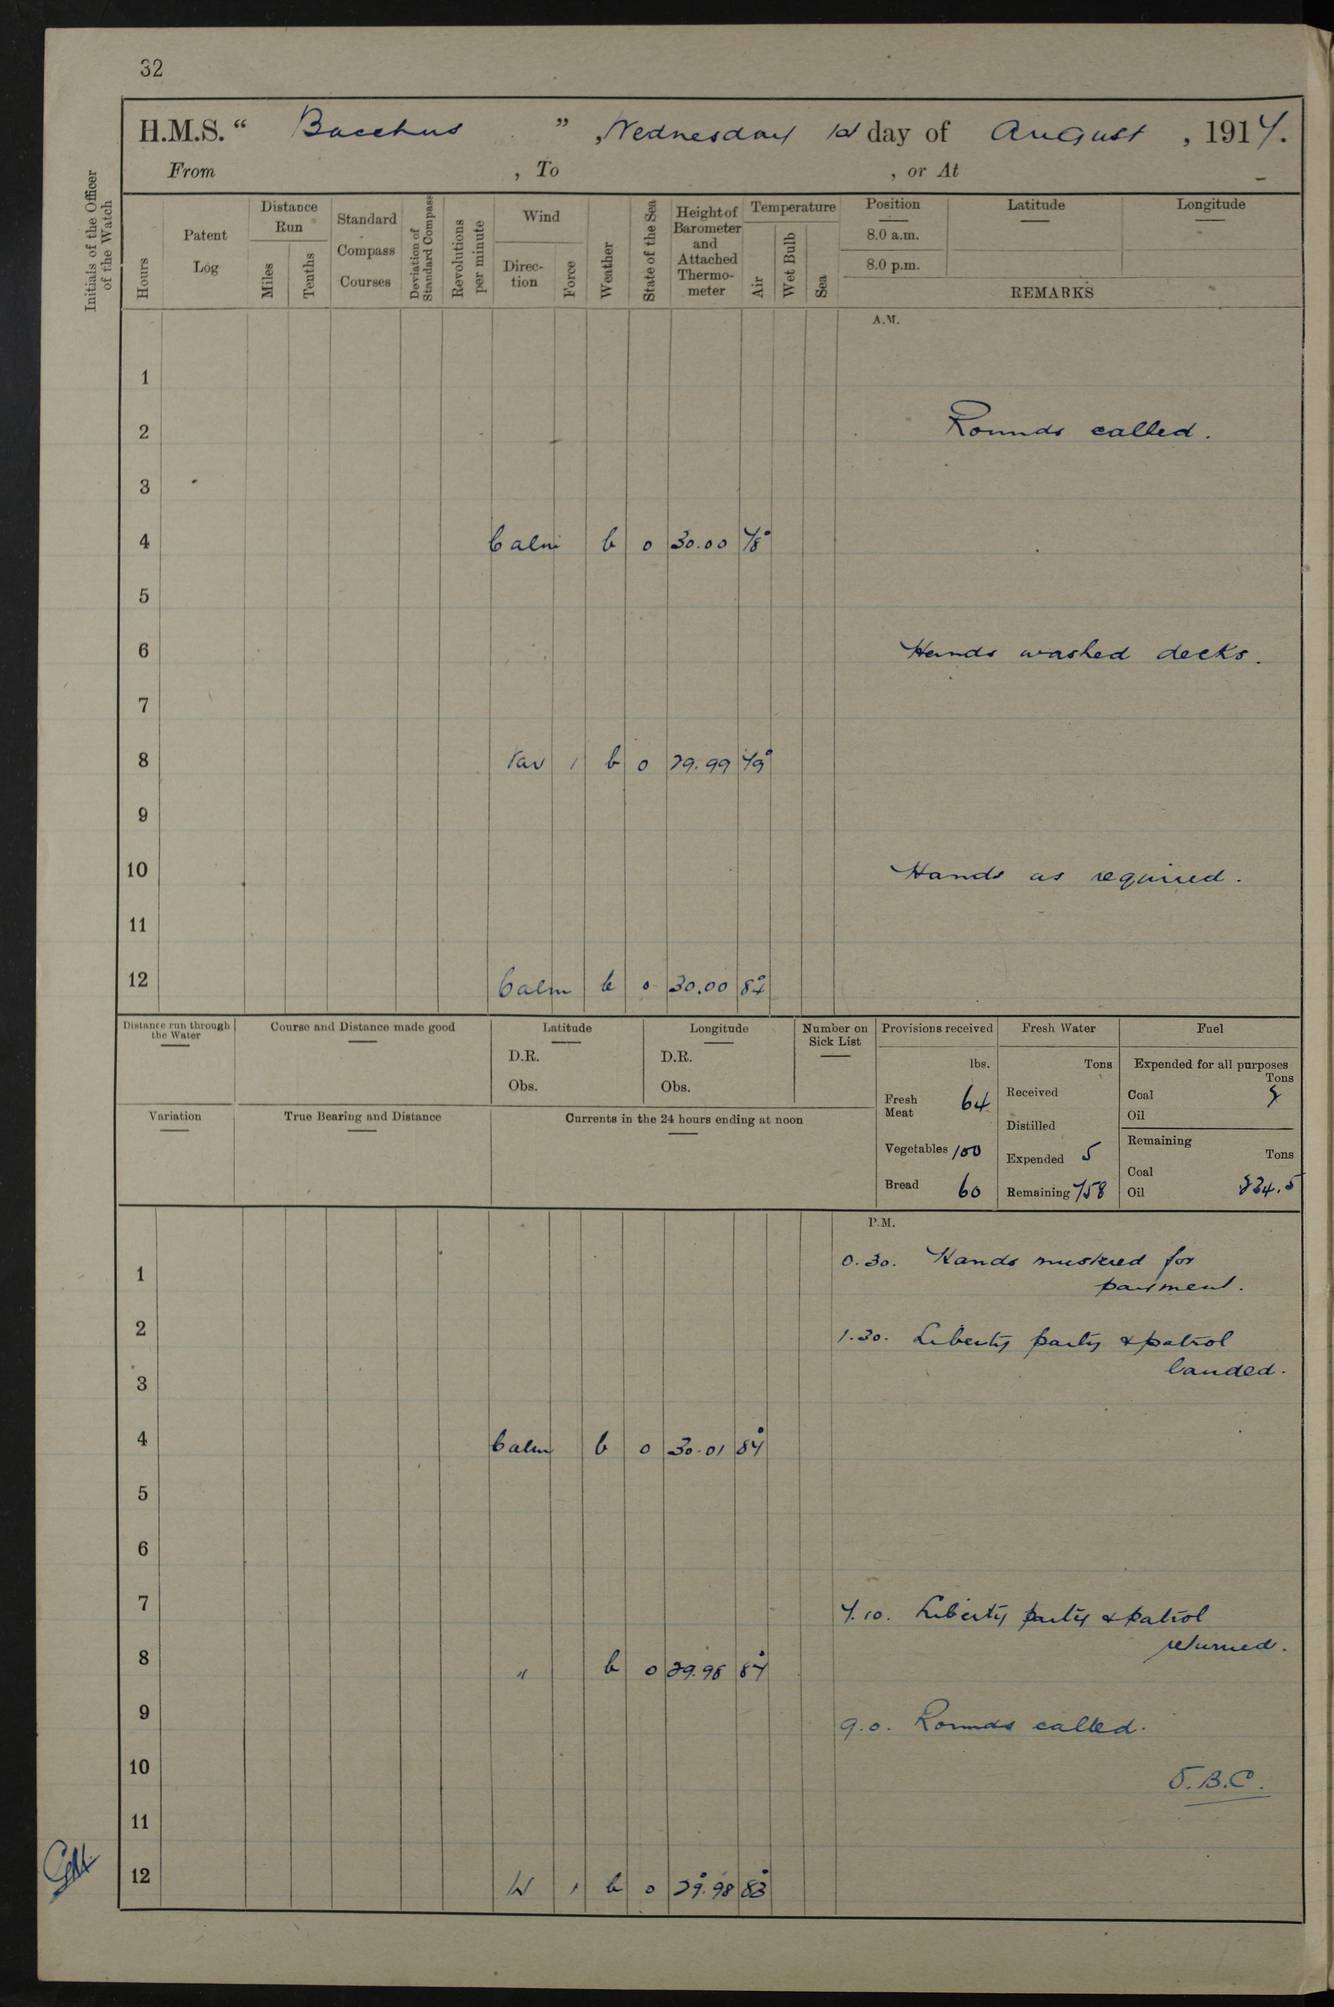 32
H.M.S. “ Bacchus ” , Wednesday 1st day of August , 1917.
From , To , or At
Initials of the Officer of the Watch
Hours
Patent Log
Distance Run
Miles
Tenths
Standard Compass Courses
Deviation of Standard Compass
Revolutions per minute
Wind
Direction
Force
Weather
State of the Sea
Height of Barometer and Attached Thermometer
Temperature
Air
Wet Bulb
Sea
Position
8.0 a.m.
8.0 p.m.
Latitude
Longitude
REMARKS
A.M.
1
2 Rounds called.
3
4 Calm b 0 30.00 78°
5
6 Hands washed decks.
7
8 Var 1 b 0 29.99 79°
9
10 Hands as required.
11
12 Calm b 0 30.00 84°
Distance run through the Water
Course and Distance made good
Latitude
D.R.
Obs.
Longitude
D.R.
Obs.
Number on Sick List
Variation
True Bearing and Distance
Currents in the 24 hours ending at noon
Provisions received
lbs.
Fresh Meat 64
Vegetables 100
Bread 60
Fresh Water
Tons
Received
Distilled
Expended 5
Remaining 758
Fuel
Expended for all purposes
Tons
Coal 8
Oil
Remaining
Tons
Coal
Oil 834.5
P.M.
1 0.30. Hands mustered for
payment.
2 1.30. Liberty party & patrol
landed.
3
4 Calm b 0 30.01 87°
5
6
7 7.10. Liberty party & patrol
returned.
8 " b 0 29.98 87°
9 9.0. Rounds called.
10 J.B.C.
11
12 W 1 b 0 29.98 83°